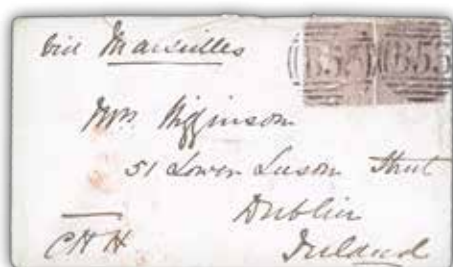 via Marseilles
B53 B53
Mrs. Higginson
51 Lower Leeson Street
Dublin
Ireland
CHH